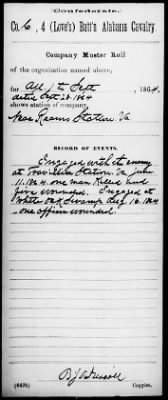 Confederate.
Co. C, 4 (Love's) Batt'n Alabama Cavalry.
Company Muster Roll
of the organization named above,
for Apl. 1 to Sept, 1864.
dated Sept 28, 1864
shows station of company,
Near Reams Station, Va
RECORD OF EVENTS.
Engaged with the enemy
at Station, Va June
11, 1864 one man killed and
five wounded. Engaged at
White Oak Swamp Aug 16, 1864
one officer wounded.
Copyist.